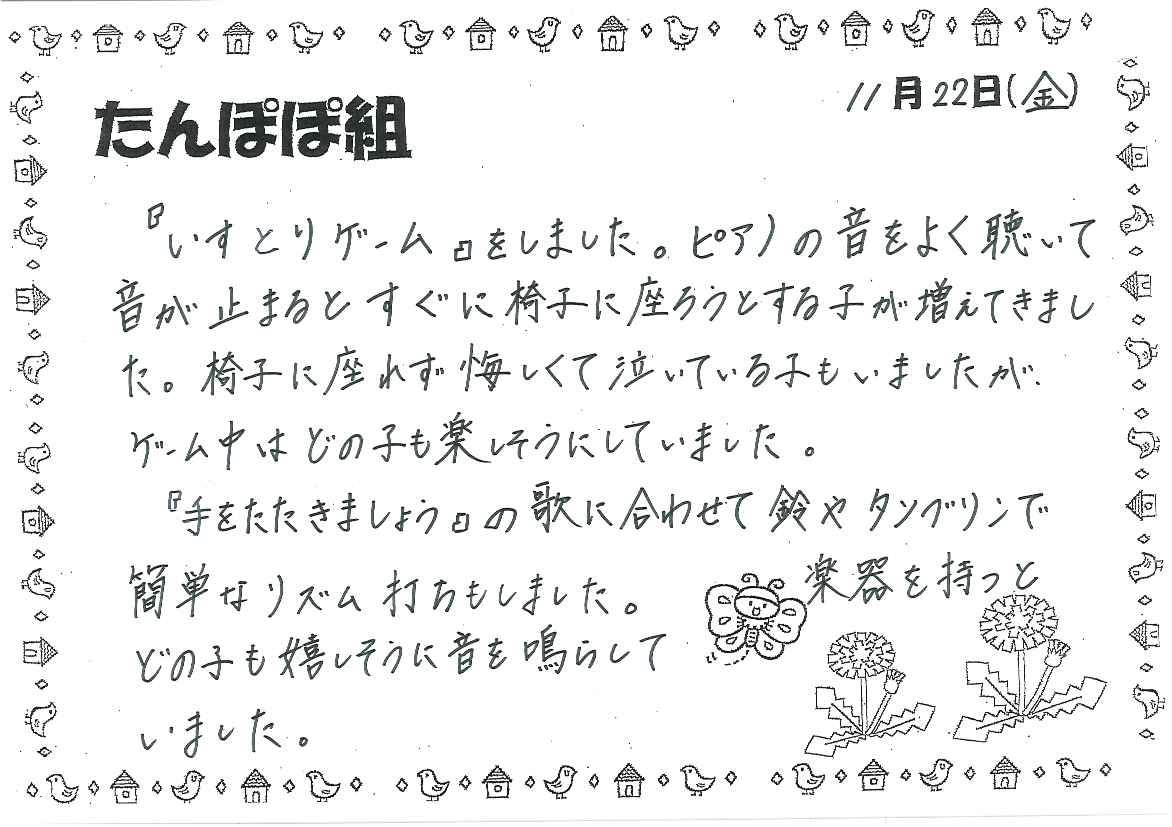 11月22日(金)
たんぽぽ組
『いすとりゲーム』をしました。ピアノの音をよく聴いて
音が止まるとすぐに椅子に座ろうとする子が増えてきまし
た。椅子に座れず悔しくて泣いている子もいましたが、
ゲーム中はどの子も楽しそうにしていました。
『手をたたきましょう』の歌に合わせて鈴やタンブリンで
簡単なリズム打ちもしました。 楽器を持つと
どの子も嬉しそうに音を鳴らして
いました。